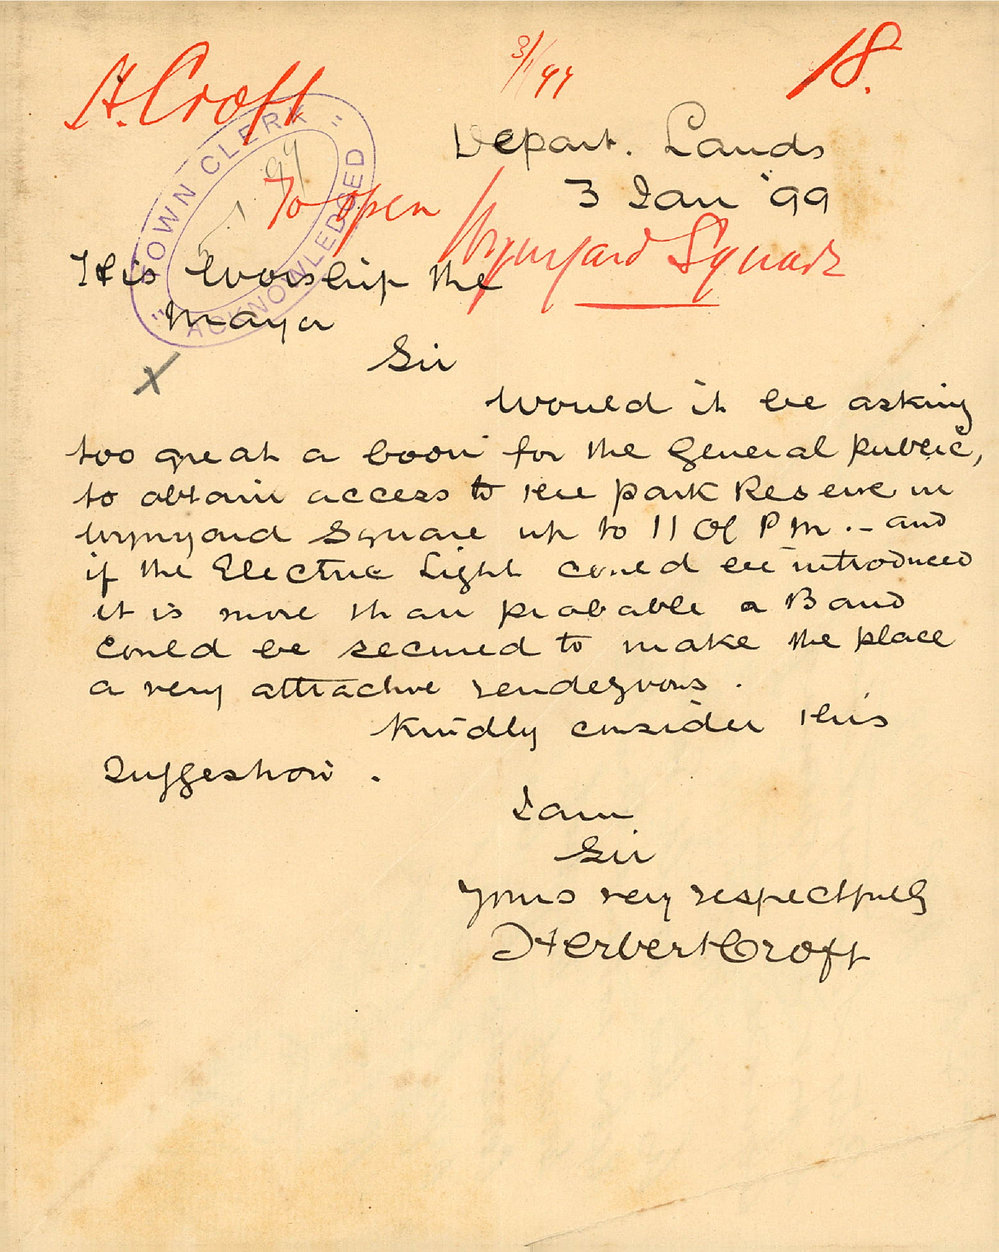 H. Croft
3/1/99
18.
"TOWN CLERK"
ACKNOWLEDGED
To open
Wynyard Square
Depart. Lands
3 Jan '99
His Worship the
Mayor
Sir
Would it be asking
too great a boon for the General public,
to obtain access to the park Reserve in
Wynyard Square up to 11 O'C P M. – and
if the Electric Light could be introduced
it is more than probable a Band
could be secured to make the place
a very attractive rendezvous.
Kindly consider this
Suggestion.
I am
Sir
Yours very respectfully
Herbert Croft